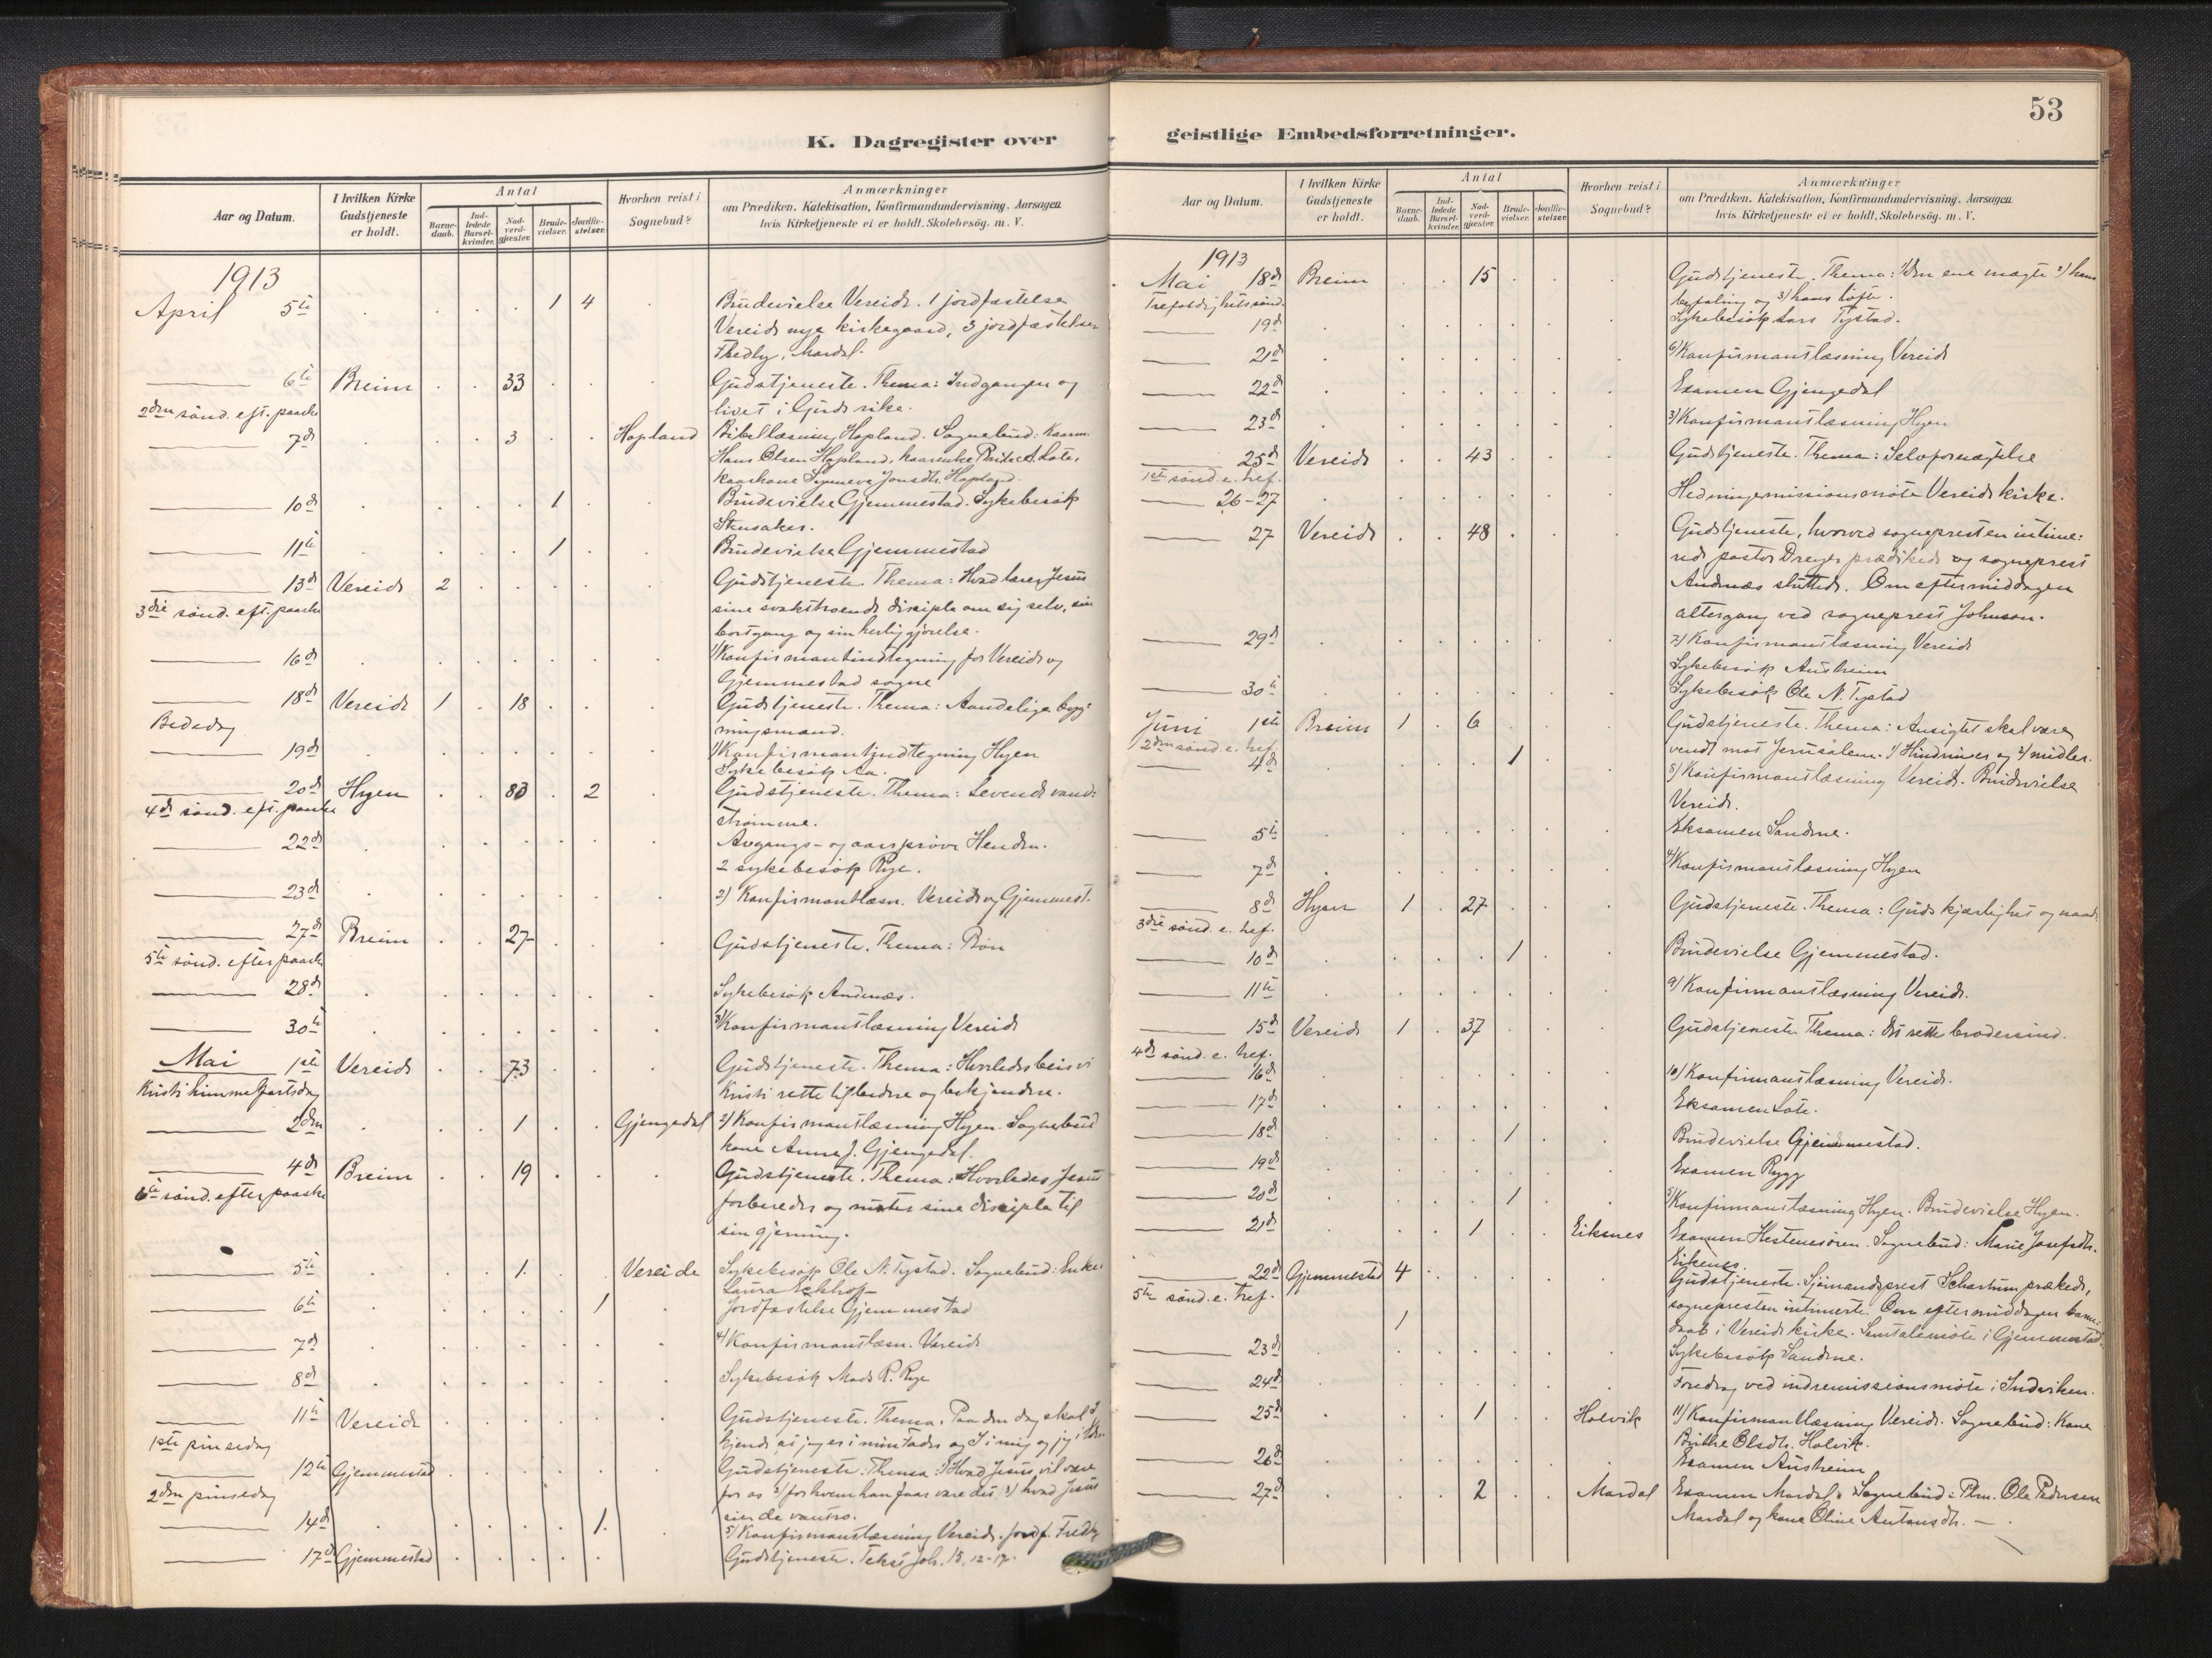 K. Dagregister over
Aar og Datum.
I hvilken Kirke
Gudstjeneste
er holdt.
Antal
Barne-
daab.
Ind-
ledede
Barsel-
kvinder.
Nad-
verd-
gjæster.
Brude-
vielser.
Jordfæ-
stelser.
Hvorhen reist i
Sognebud?
Anmærkninger
om Prædiken, Katekisation, Konfirmandundervisning, Aarsagen
hvis Kirketjeneste ei er holdt, Skolebesøg. m. V.
1913
April 5te 1 4 Brudevielse Vereide. 1 jordfæstelse
Vereide nye kirkegaard, 3 jordfæstelser
Fredly, Mardal.
6te Breim 33 Gudstjeneste. Thema: Indgangen og
2den sønd. eft. paaske livet i Guds rike.
7de 3 Hopland Bibellæsning Hopland. Sognebud: Kaarm.
Hans Olsen Hopland, kaarenke A. Lote,
kaarkone Synneve Jonsdtr. Hopland.
10de 1 Brudevielse Gjemmestad. Sykebesøk
Stensaker.
11te 1 Brudevielse Gjemmestad
13de Vereide 2 Gudstjeneste. Thema: Hvad lærer Jesus
3die sønd. eft. paaske sine svaktroende disciple om sig selv, sin
bortgang og sin herliggjørelse.
16de 1) Konfirmantindtegning for Vereide og
Gjemmestad sogne
18de Vereide 1 18 Gudstjeneste. Thema: Aandelige byg-
Bededag ningsmænd.
19de 1) Konfirmantindtegning Hyen
Sykebesøk Aa.
20de Hyen 80 2 Gudstjeneste. Thema: Levende vand-
4de sønd. eft. paaske strømme.
22de Avgangs- og aarsprøve Henden.
2 sykebesøk Rye.
23de 2) Konfirmantlæsn. Vereide og Gjemmest.
27de Breim 27 Gudstjeneste. Thema: Bøn
5te sønd. efter paaske
28de Sykebesøk Andenæs.
30te 3) Konfirmantlæsning Vereide
Mai 1ste Vereide 73 Gudstjeneste. Thema: Hvorledes beis vi
Kristi himmelfartsdag Kristi rette tilbedere og bekjendere.
2den 1 Gjengedal 2) Konfirmantlæsning Hyen. Sognebud
kone Anna J. Gjengedal.
4de Breim 19 Gudstjeneste. Thema: Hvorledes Jesus
6te sønd. efter paaske forbereder og ruster sine disciple til
sin gjerning.
5te 1 Vereide Sykebesøk Ole N. Tystad. Sognebud: Enke
Laura Eckhoff
6te 1 Jordfæstelse Gjemmestad
7de 4) Konfirmantlæsn. Vereide
8de Sykebesøk Mads R. Rye
11te Vereide Gudstjeneste. Thema: Paa den dag skal I
1ste pinsedag kjende at jeg er i min Fader og I i mig og jeg i eder
12te Gjemmestad Gudstjeneste: Thema: 1) Hvad Jesus vil være
2den pinsedag for os 2) for hvem han faar være det 3) hvad Jesus
sier de vantro.
14de 1 5) Konfirmantlæsning Vereide. Jordf. Fredly
17de Gjemmestad Gudstjeneste. Tekst Joh. 15, 12-17.
53
geistlige Embedsforretninger.
Aar og Datum.
I hvilken Kirke
Gudstjeneste
er holdt.
Antal
Barne-
daab.
Ind-
ledede
Barsel-
kvinder.
Nad-
verd-
gjæster.
Brude-
vielser.
Jordfæ-
stelser.
Hvorhen reist i
Sognebud?
Anmærkninger
om Prædiken, Katekisation, Konfirmandundervisning, Aarsagen
hvis Kirketjeneste ei er holdt, Skolebesøg. m. V.
1913
Mai 18de Breim 15 Gudstjeneste. Thema: 1) Den ene magt 2) hans
Trefoldighetssønd. befaling og 3) hans løfte.
19de Sykebesøk Lars Tystad.
21de 6) Konfirmantlæsning Vereide
22de Examen Gjengedal
23de 3) Konfirmantlæsning Hyen
25de Vereide 43 Gudstjeneste. Thema: Selvfornægtelse
1ste sønd. e. tref.
26-27 Hedningemissionsmøte Vereide kirke.
27 Vereide 48 Gudstjeneste, hvorved sognepresten intime-
rede pastor Dreyer prædikede og sogneprest
Andnæs sluttede. Om eftermiddagen
altergang ved sogneprest Johnson.
29de 7) Konfirmantlæsning Vereide
Sykebesøk Austreim
30te Sykebesøk Ole N. Tystad
Juni 1ste Breim 1 6 Gudstjeneste. Thema: Ansigtet skal være
2den sønd. e. tref. vendt mot Jerusalem. 1) Hindringer og 2) midler.
4de 1 8) Konfirmantlæsning Vereide. Brudevielse
Vereide.
5te Eksamen Sandene.
7de 4) Konfirmantlæsning Hyen
8de Hyen 1 27 Gudstjeneste. Thema: Guds kjærlighet og naade
3die sønd. e. tref.
10de 1 Brudevielse Gjemmestad.
11te 9) Konfirmantlæsning Vereide.
15de Vereide 1 37 Gudstjeneste. Thema: Det rette brodersind.
4de sønd. e. tref.
16de 10) Konfirmantlæsning Vereide.
17de Eksamen Lote.
18de 1 Brudevielse Gjemmestad.
19de Examen Rygg
20de 1 5) Konfirmantlæsning Hyen. Brudevielse Hyen.
21de 1 Eikenes Examen Hestenesøren. Sognebud: Marie Josefsdtr.
Eikenes.
22de Gjemmestad 4 Gudstjeneste. Sjømandsprest Schartum prækede,
5te sønd. e. tref. sognepresten intimerte. Om eftermiddagen barne-
1 daab i Vereide kirke. Samtalemøte i Gjemmestad.
23de Sykebesøk Sandene.
24de Foredrag ved indremissionsmøte i Indviken.
25de 1 Holvik 11) Konfirmantlæsning Vereide. Sognebud: Kone
Brithe Olsdtr. Holvik.
26de Examen Austreim
27de 2 Mardal Examen Mardal. Sognebud: Plm. Ole Pedersen
Mardal og kone Oline Antonsdtr. —